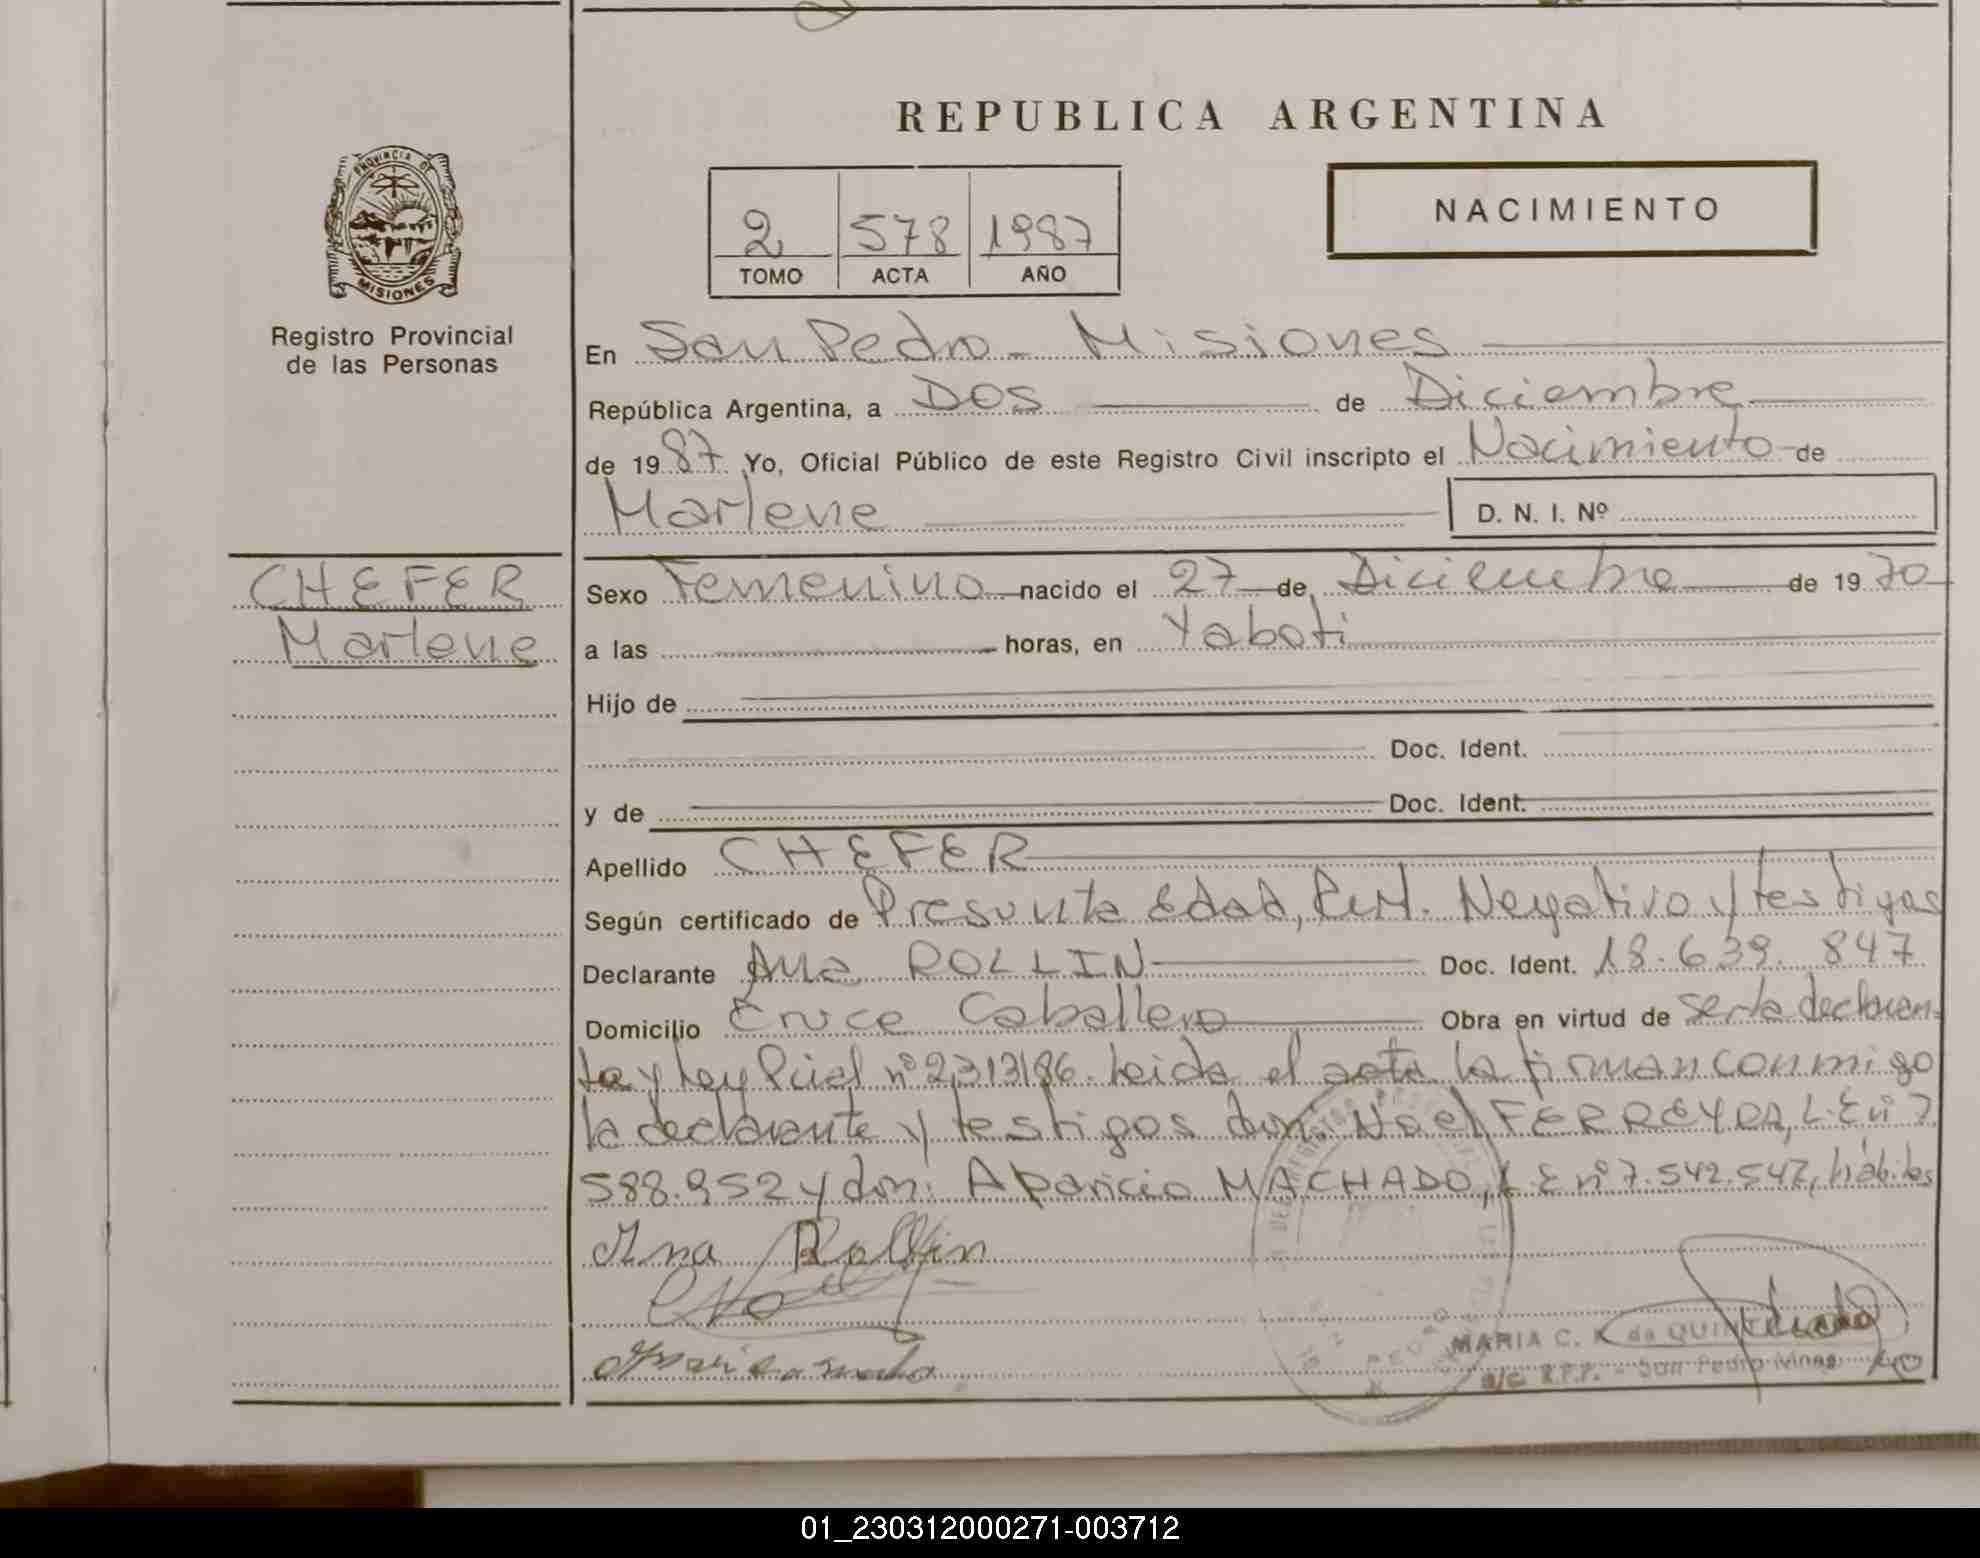 REPUBLICA ARGENTINA
PROVINCIA DE
MISIONES
Registro Provincial
de las Personas
2 578 1987
TOMO ACTA AÑO
NACIMIENTO
En San Pedro - Misiones
República Argentina, a DOS de Diciembre
de 1987 Yo, Oficial Público de este Registro Civil inscripto el Nacimiento de
Marlene D. N. I. Nº
CHEFER
Marlene
Sexo Femenino nacido el 27 de Diciembre de 1970
a las horas, en Yaboti
Hijo de
Doc. Ident.
y de Doc. Ident.
Apellido CHEFER
Según certificado de Presunta Edad, Cert. Negativo y testigos
Declarante Ana ROLLIN Doc. Ident. 18.639.847
Domicilio Cruce Caballero Obra en virtud de ser la declaran-
te y Ley Pcial nº 2313/86. Leida el acta la firman conmigo
la declarante y testigos don: Noel FERREYRA, L.E nº 7.
588.952 y don: Aparicio MACHADO, L.E nº 7.542.547, hábiles
Ana Rollin
MARIA C. K de
a/c R.P.P. - San Pedro Mnes.
01_230312000271-003712